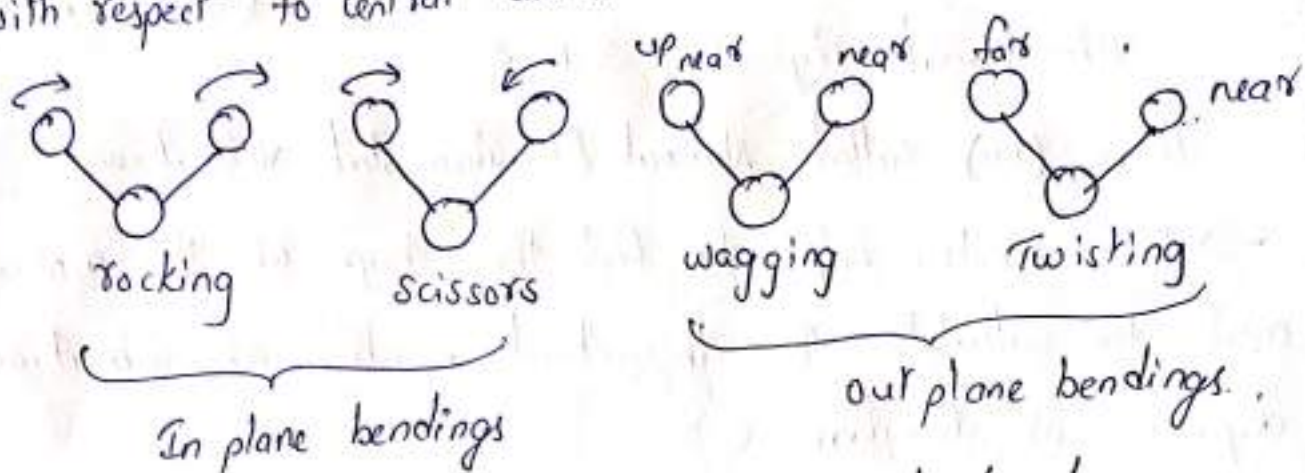 with respect to central
up near near far near
rocking scissors wagging Twisting
In plane bendings out plane bendings.